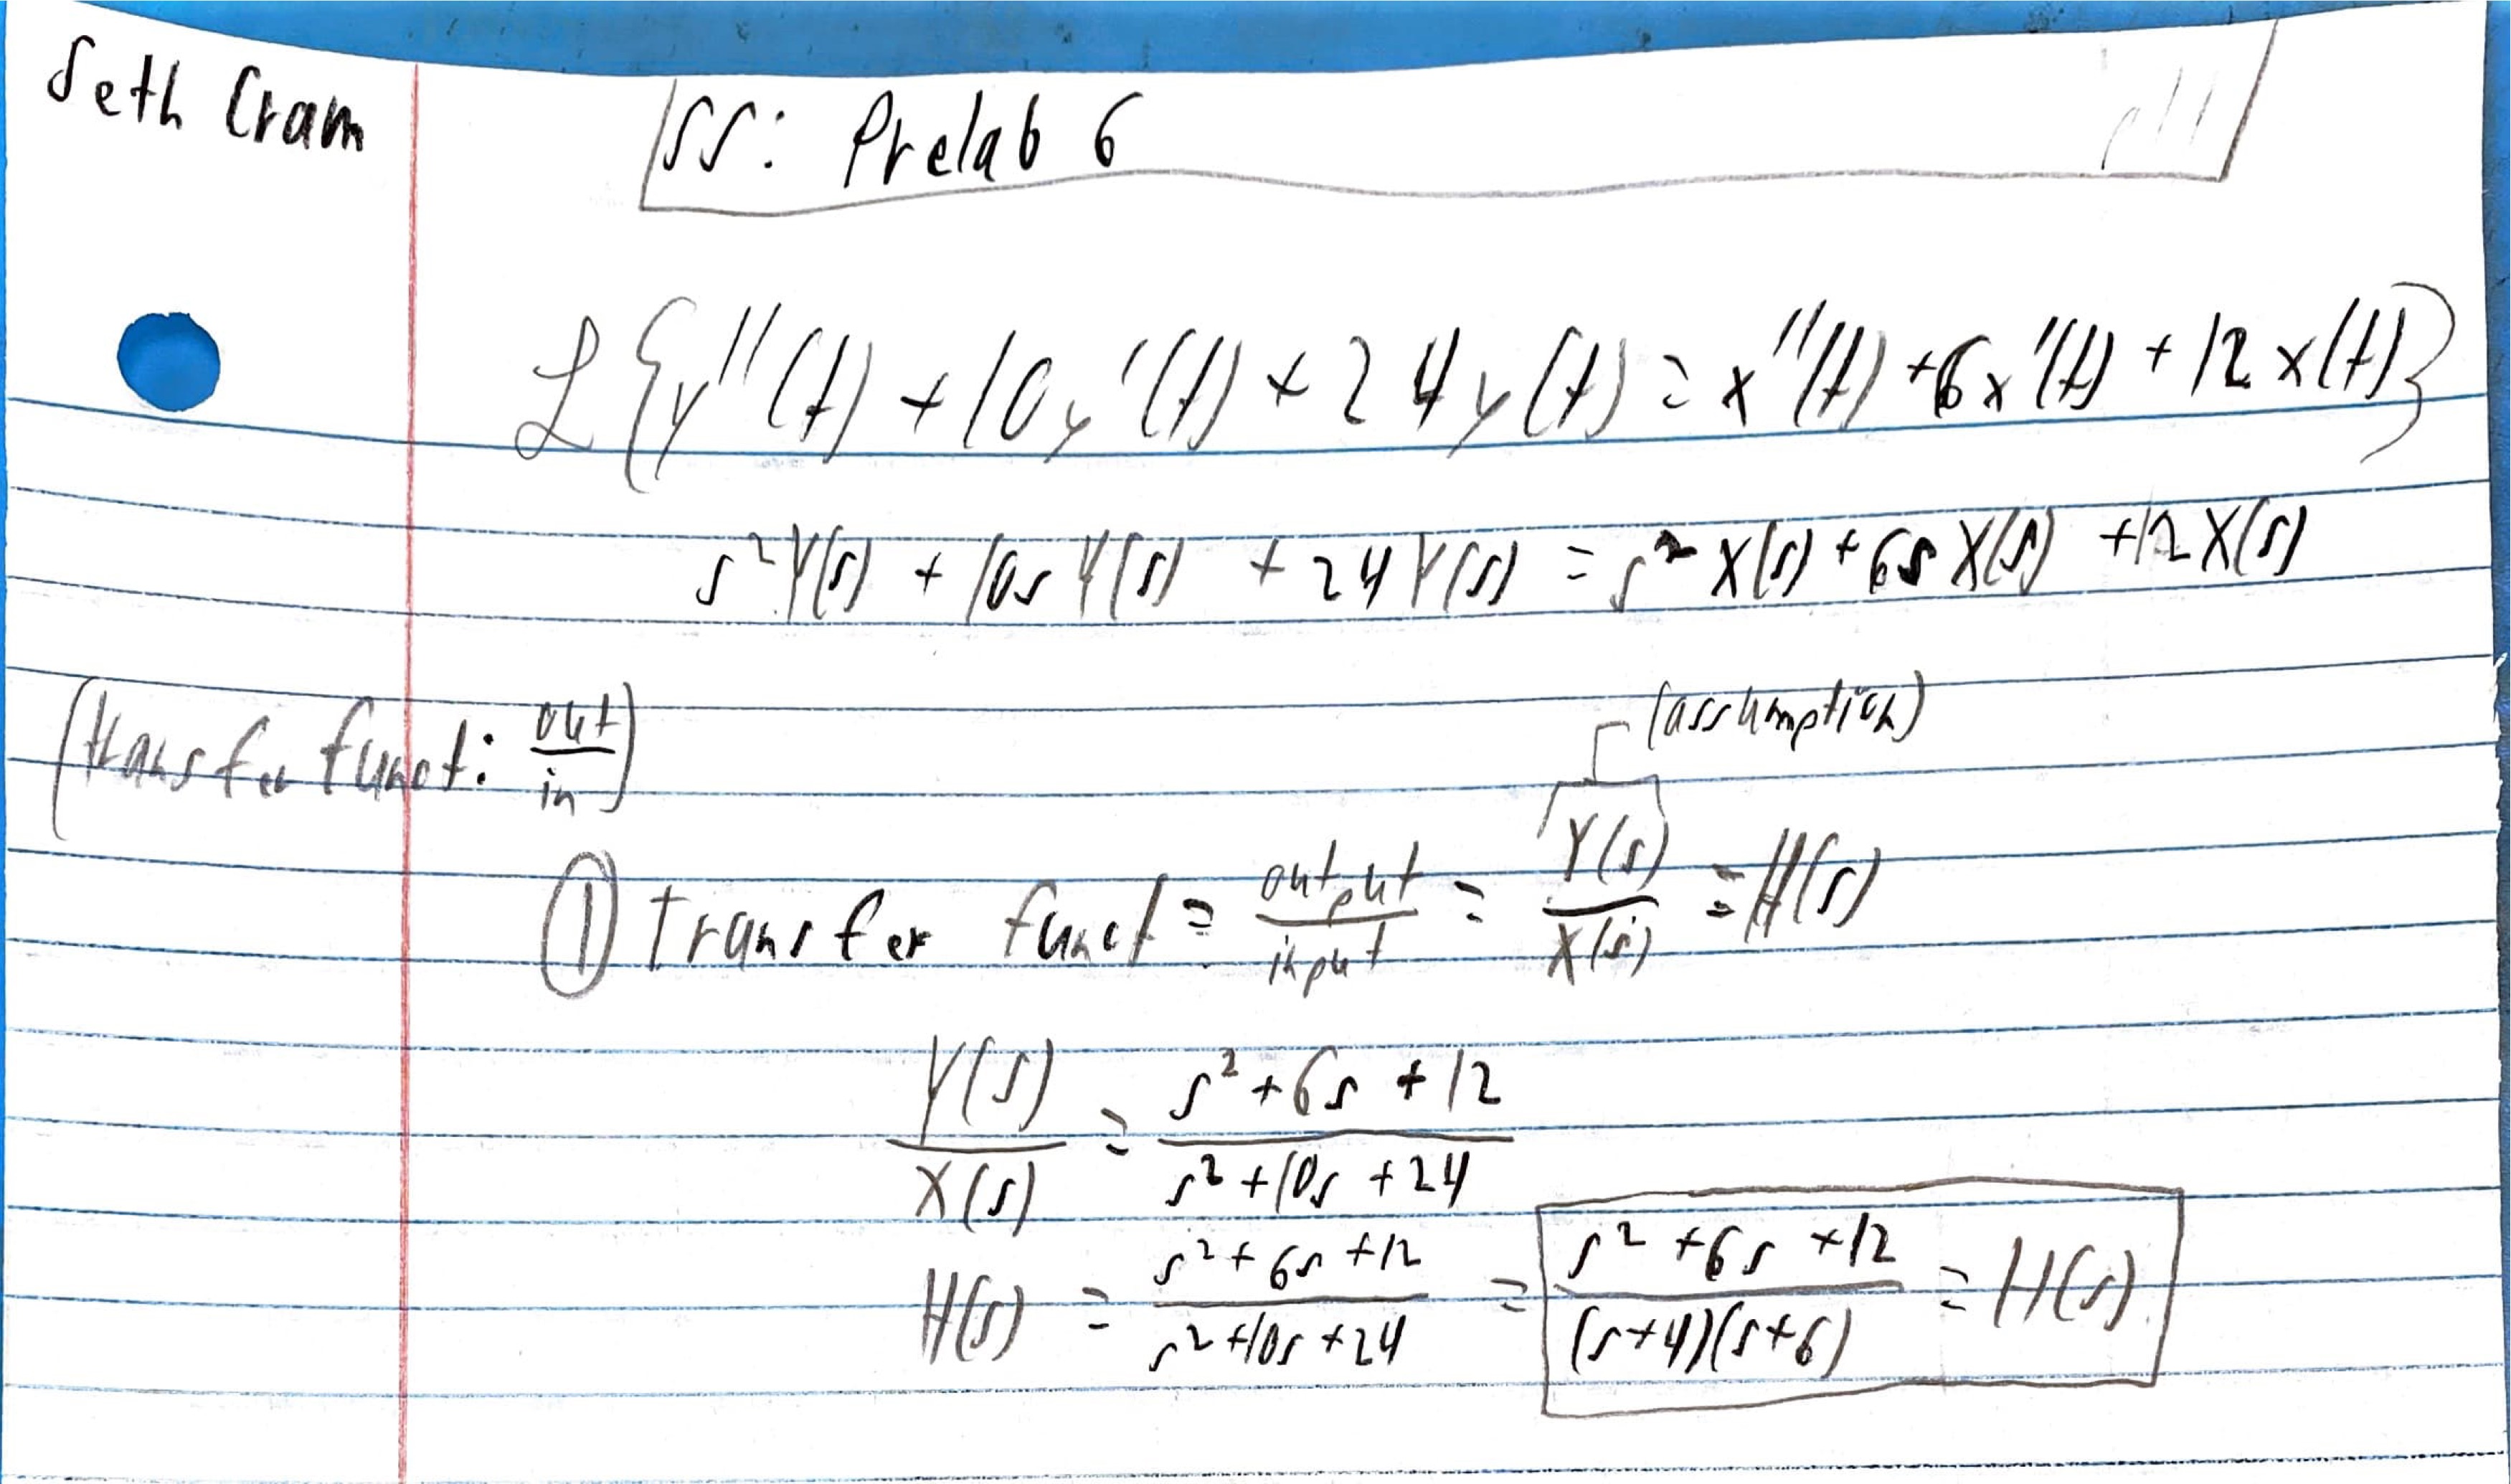 Seth Cram
SS: Prelab 6
ℒ{y''(t) + 10y'(t) + 24y(t) = x''(t) + 6x'(t) + 12x(t)}
s²Y(s) + 10sY(s) + 24Y(s) = s²X(s) + 6sX(s) + 12X(s)
(transfer funct: out/in)
(assumption)
① transfer funct = output/input = Y(s)/X(s) = H(s)
Y(s)/X(s) = (s²+6s+12)/(s²+10s+24)
H(s) = (s²+6s+12)/(s²+10s+24) = (s²+6s+12)/((s+4)(s+6)) = H(s)